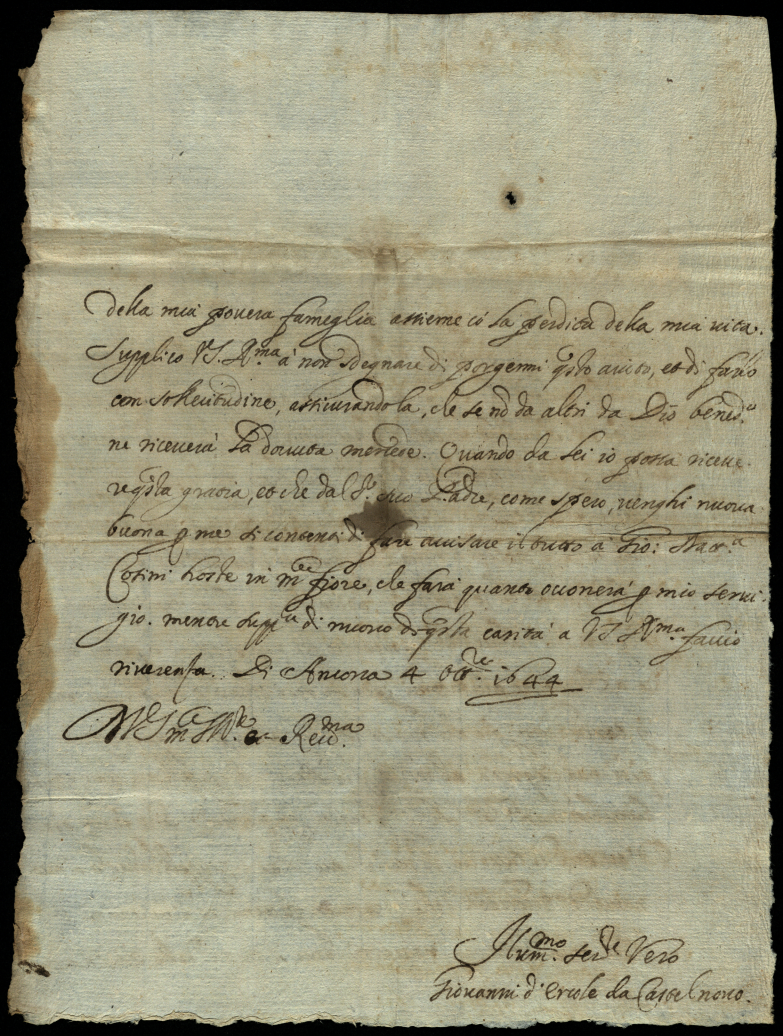 della mia povera fameglia assieme cō la perdita della mia vita.
Supplico V.S. R.ma à non sdegnare di porgermi q̃sto aiuto, et di farlo
con sollecitudine, assicurandola, che se nō da altri da Dio bened.o
ne riceverà la dovuta mercede. Quando da lei io possa riceve-
re q̃sta gratia, et che dal S.r suo Padre, come spero, venghi nuova
buona p me si contenti di fare avisare il tutto à Gio: Batt.a
Cosini hoste in m.te fiore, che farà quanto p mio servi-
gio. mentre supp.do di nuovo di q̃sta carità a V.S. R.ma faccio
riverenza. Di Ancona 4 Ott.re 1644
Di V.S. m.to Ill.re et Rev.ma
Hum.mo ser.re Vero
Giovanni d'Ercole da Castelnovo.